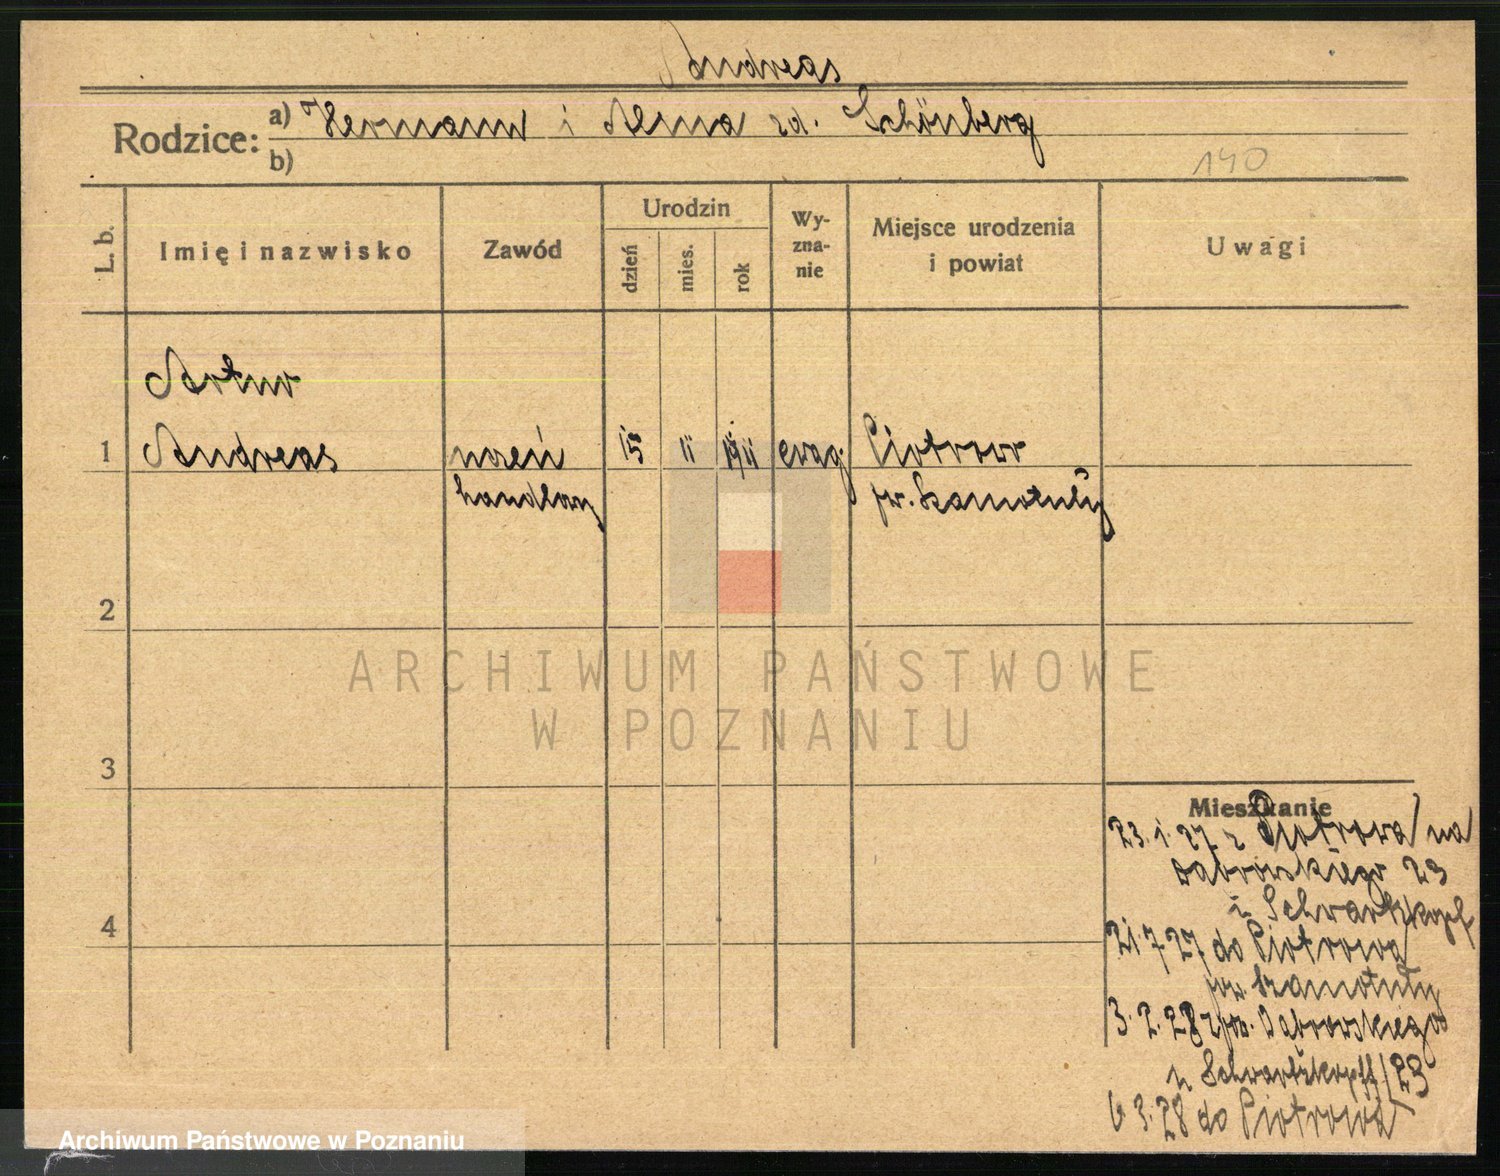 Andreas
Rodzice: a) Hermann i Alma zd. Schönberg
b)
140
L. b.
Imię i nazwisko
Zawód
Urodzin
dzień
mies.
rok
Wy-
zna-
nie
Miejsce urodzenia
i powiat
Uwagi
Artur
1 Andreas uczeń 15 11 1911 ewag. Piotrowo
handlowy pw. Szamotuły
2
ARCHIWUM PAŃSTWOWE
W POZNANIU
3
Mieszkanie
23.1.27 z Piotrowa na
Dąbrowskiego 23
u Schwartzkopf
4
21.7.27 do Piotrowa
pw. Szamotuły
3.2.28 z pow. Dąbrowskiego
u Schwartzkopff 23
6 3.28 do Piotrowa
Archiwum Państwowe w Poznaniu